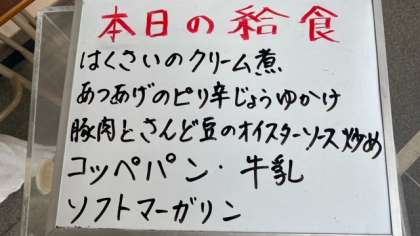 本日の給食
はくさいのクリーム煮
あつあげのピリ辛じょうゆかけ
豚肉とさんど豆のオイスターソース炒め
コッペパン・牛乳
ソフトマーガリン